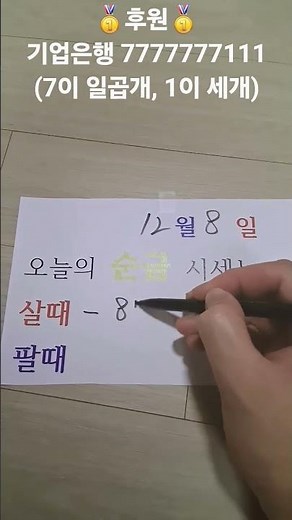 🥇후원🥇
기업은행 7777777111
(7이 일곱개, 1이 세개)
12월 8 일
오늘의 순금 시세는
살때 - 8
팔때